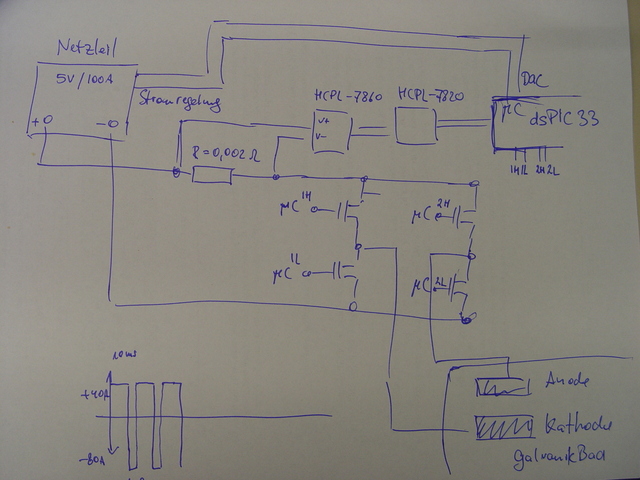 Netzteil
5V/100A
Stromregelung
+O
-O
HCPL-7860
HCPL-7820
V+
V-
DAC
µC
dsPIC33
1H 1L 2H 2L
R=0,002Ω
µC 1H
µC 2H
µC 1L
µC 2L
10ms
+40A
-80A
Anode
Kathode
Galvanik Bad